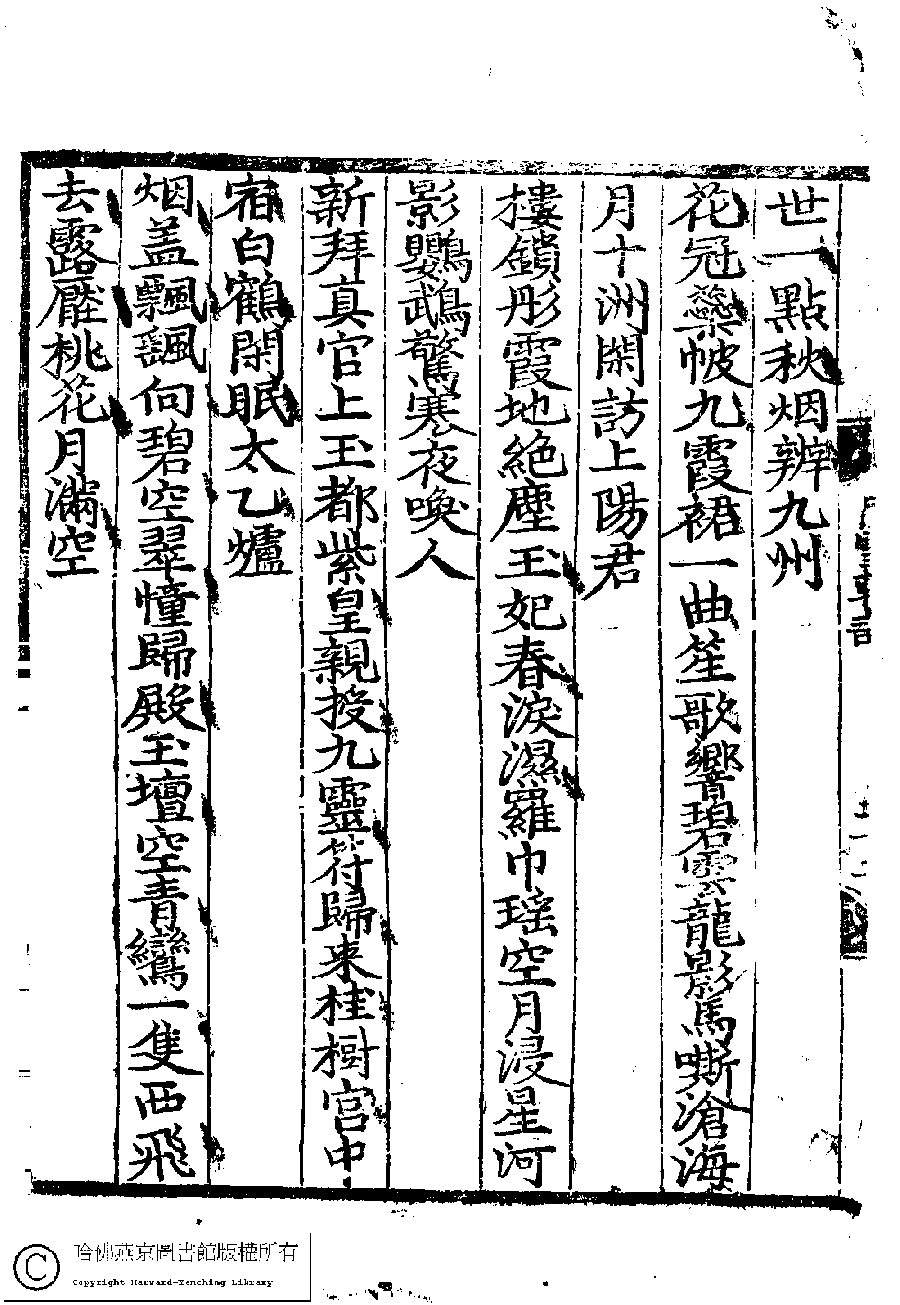 世一點秋烟辨九州
花冠蘂帔九霞裙一曲笙歌響碧雲龍影馬嘶滄海
月十洲閑訪上陽君
樓鎖彤霞地絶塵玉妃春淚濕羅巾瑶空月浸星河
影鸚鵡驚寒夜喚人
新拜真官上玉都紫皇親授九靈符歸来桂樹宮中
宿白鶴閑眠太乙爐
烟盖飄飄向碧空翠幢歸殿玉壇空青鸞一隻西飛
去露壓桃花月滿空
哈佛燕京圖書館版權所有
Copyright Harvard-Yenching Library